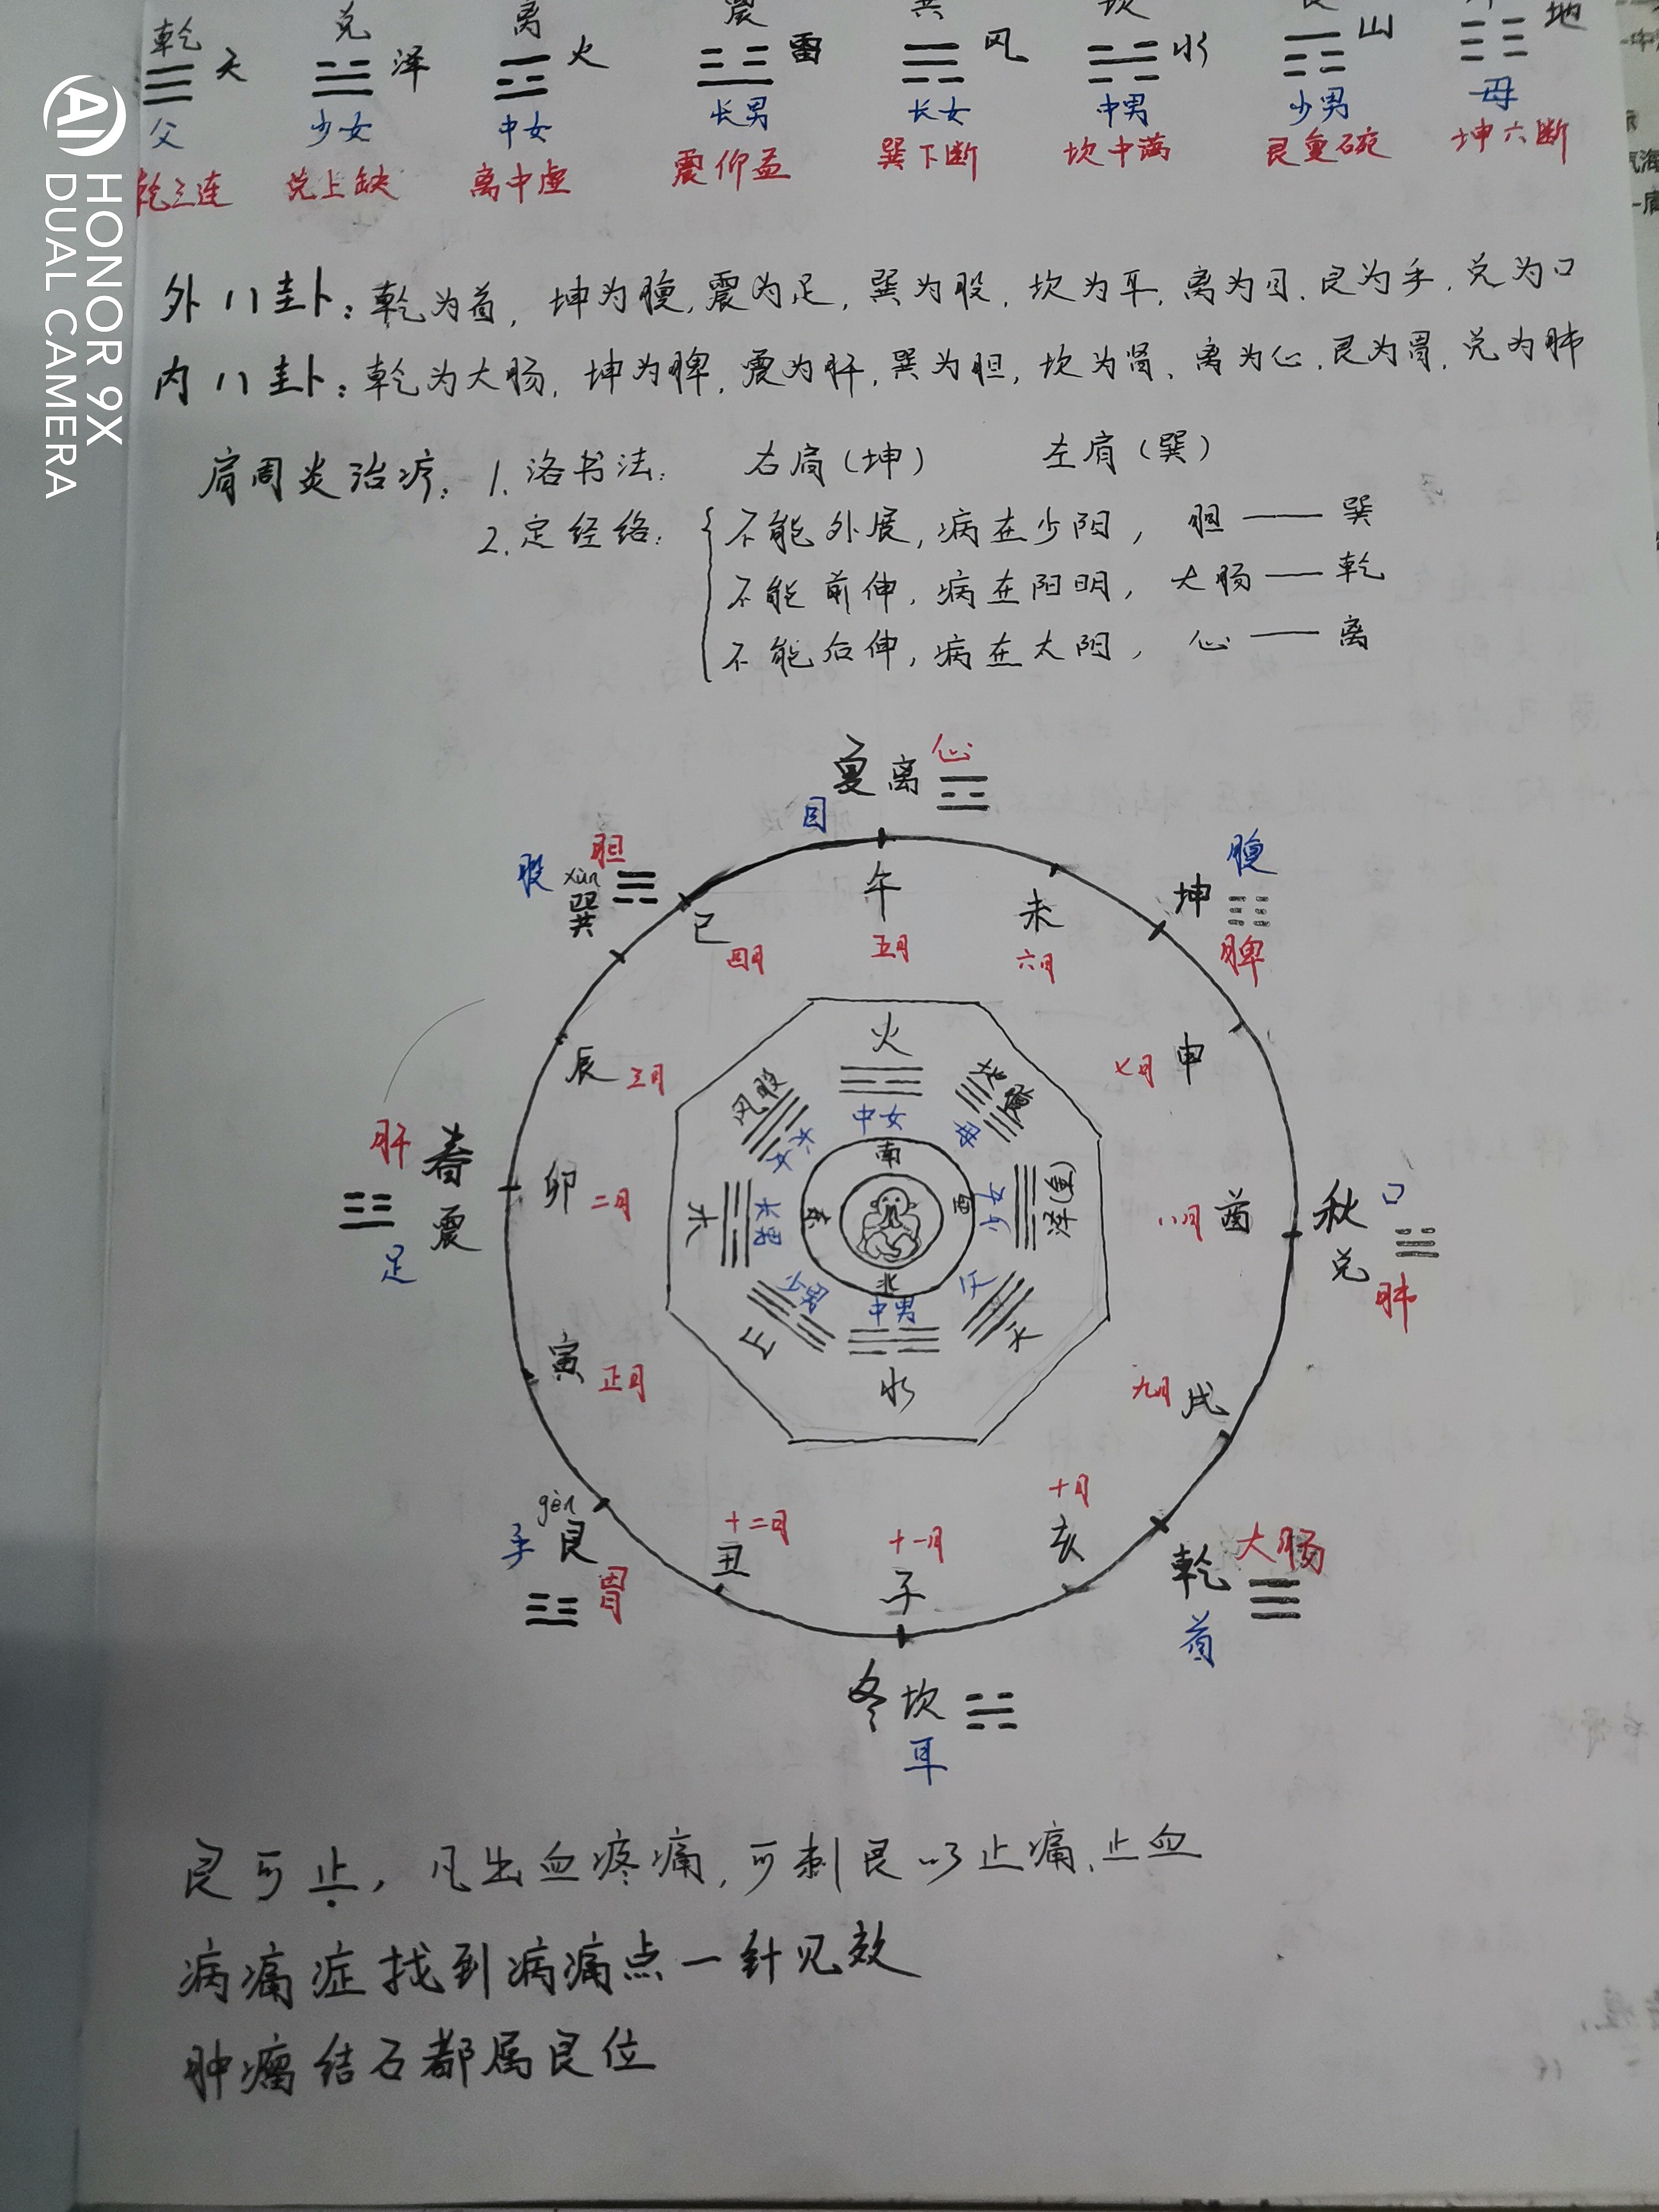 乾 兑 离 震 巽 坎 艮 坤
天 泽 火 雷 风 水 山 地
父 少女 中女 长男 长女 中男 少男 母
乾三连 兑上缺 离中虚 震仰盂 巽下断 坎中满 艮覆碗 坤六断
外八卦：乾为首，坤为腹，震为足，巽为股，坎为耳，离为目，艮为手，兑为口
内八卦：乾为大肠，坤为脾，震为肝，巽为胆，坎为肾，离为心，艮为胃，兑为肺
肩周炎治疗：1.洛书法：右肩（坤） 左肩（巽）
2.定经络：不能外展，病在少阳，胆——巽
不能前伸，病在阳明，大肠——乾
不能后伸，病在太阳，心——离
夏离 心
目
股 胆 xùn 巽
坤 腹 脾
巳 四月
午 五月
未 六月
辰 三月
申 七月
卯 二月
酉 八月
寅 正月
戌 九月
丑 十二月
子 十一月
亥 十月
火 中女
风 股 长女
地 腹 母
木 长男
泽 少女
山 少男
水 中男
天 父
南
东 西
北
肝 春 震 足
秋 兑 口 肺
gèn
手 艮 胃
乾 大肠 首
冬坎
耳
艮可止，凡出血疼痛，可刺艮以止痛、止血
病痛症找到病痛点一针见效
肿瘤结石都属艮位
HONOR 9X
DUAL CAMERA
AI